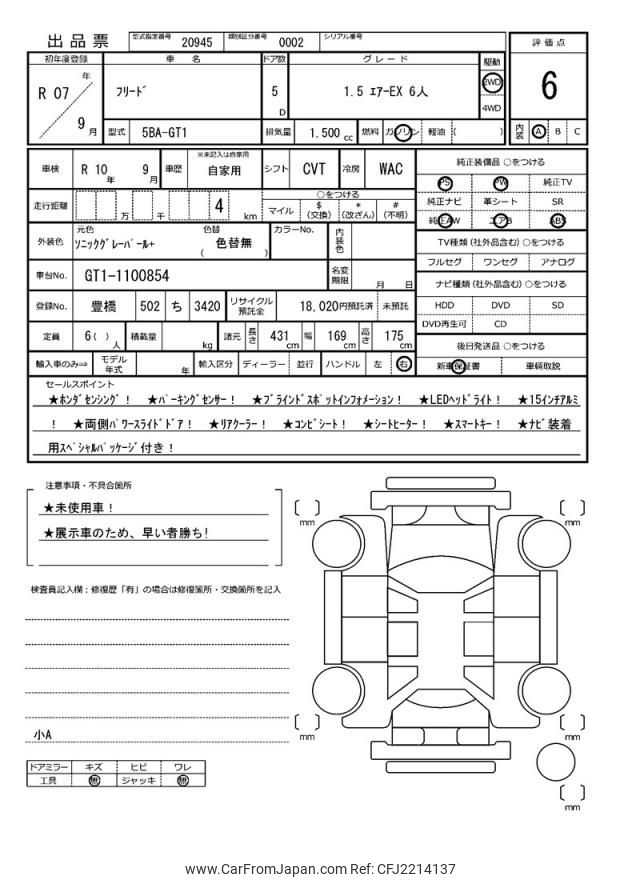 出品票 型式指定番号 20945 類別区分番号 0002 シリアル番号
評価点
6
内装 A B C
初年度登録 車名 ドア数 グレード 駆動
R 07 年 9 月 フリード 5 D 1.5 エアーEX 6人 2WD 4WD
型式 5BA-GT1 排気量 1.500 cc 燃料 ガソリン 軽油 ( )
車検 R 10 年 9 月 車歴 ※未記入は自家用 自家用 シフト CVT 冷房 WAC
走行距離 万 千 4 km ○をつける マイル $(交換) *(改ざん) #(不明)
外装色 元色 ソニックグレーパール+ 色替 ( 色替無 カラーNo. 内装色
車台No. GT1-1100854 名変期限 月 日
登録No. 豊橋 502 ち 3420 リサイクル預託金 18,020円預託済 未預託
定員 6( ) 人 積載量 kg 諸元 長さ 431 cm 幅 169 cm 高さ 175 cm
輸入車のみ⇒ モデル年式 年 輸入区分 ディーラー 並行 ハンドル 左 右
純正装備品 ○をつける
PS PW 純正TV
純正ナビ 革シート SR
純正AW エアB ABS
TV種類(社外品含む)○をつける
フルセグ ワンセグ アナログ
ナビ種類(社外品含む)○をつける
HDD DVD SD
DVD再生可 CD
後日発送品 ○をつける
新車保証書 車輌取説
セールスポイント
★ホンダセンシング! ★パーキングセンサー! ★ブラインドスポットインフォメーション! ★LEDヘッドライト! ★15インチアルミ
! ★両側パワースライドドア! ★リアクーラー! ★コンビシート! ★シートヒーター! ★スマートキー! ★ナビ装着
用スペシャルパッケージ付き!
注意事項・不具合箇所
★未使用車!
★展示車のため、早い者勝ち!
検査員記入欄:修復歴「有」の場合は修復箇所・交換箇所を記入
小A
ドアミラー キズ ヒビ ワレ
工具 無 ジャッキ 無
mm
mm
mm
mm
mm
www.CarFromJapan.com Ref: CFJ2214137